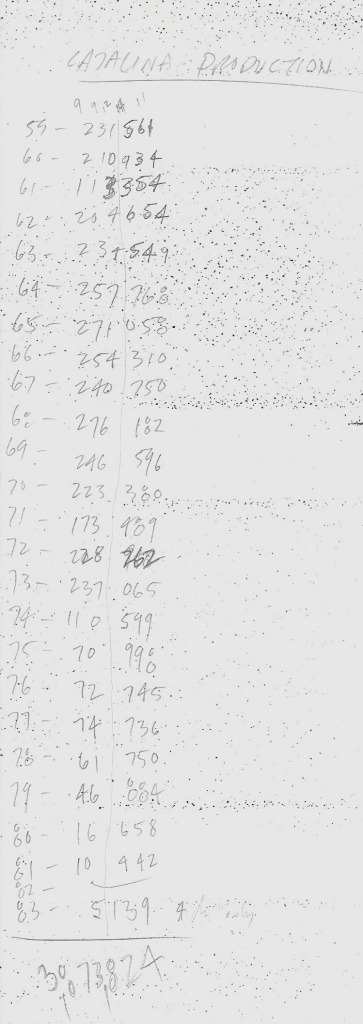 CATALINA PRODUCTION
59 - 231 561
60 - 210 934
61 - 113 354
62 - 204 654
63 - 234 549
64 - 257 768
65 - 271 058
66 - 254 310
67 - 240 750
68 - 276 182
69 - 246 596
70 - 223 380
71 - 173 489
72 - 228 262
73 - 237 065
74 - 110 599
75 - 70 998
76 - 72 745
77 - 74 736
78 - 61 750
79 - 46 884
80 - 16 658
81 - 10 942
82 -
83 - 5139 4 only